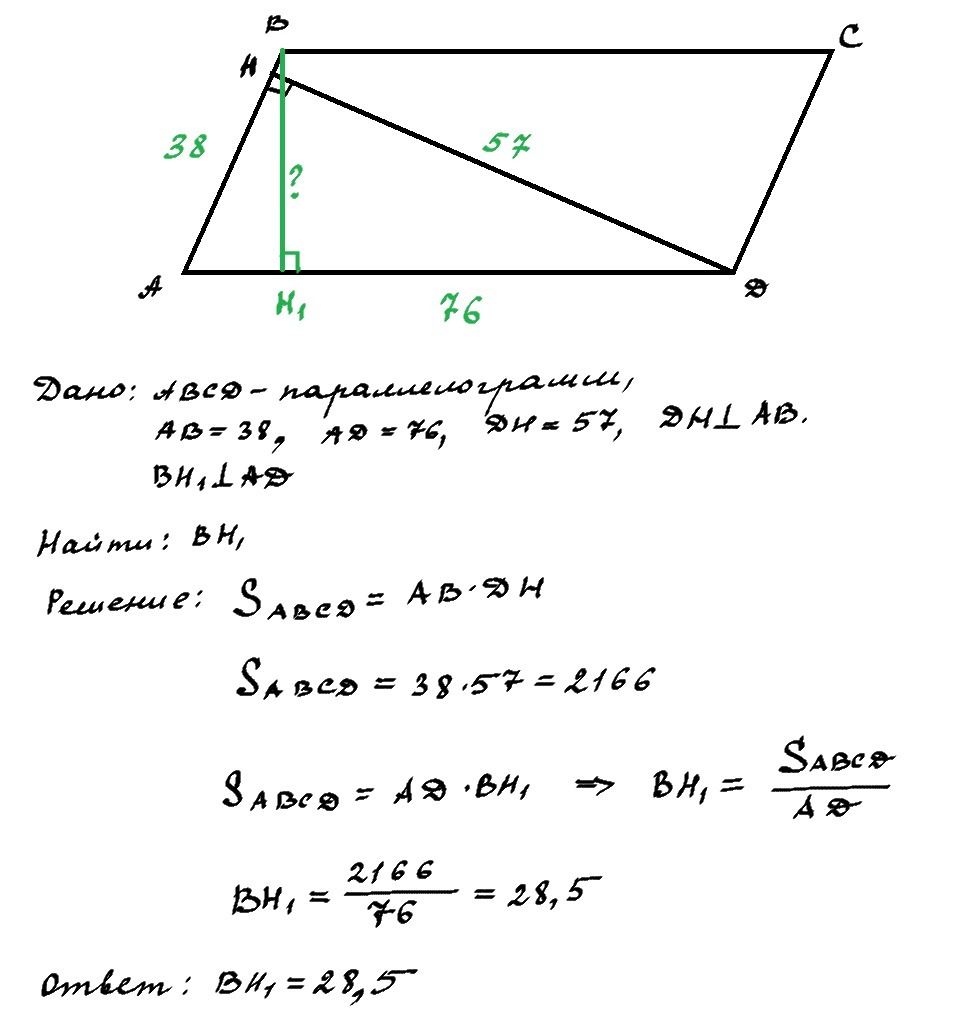 B
C
H
38
57
?
A
H₁
76
D
Дано: ABCD – параллелограмм,
AB = 38, AD = 76, DH = 57, DH⊥AB.
BH₁⊥AD
Найти: BH₁
Решение: S_ABCD = AB·DH
S_ABCD = 38·57 = 2166
S_ABCD = AD·BH₁ ⇒ BH₁ = S_ABCD / AD
BH₁ = 2166 / 76 = 28,5
Ответ: BH₁ = 28,5